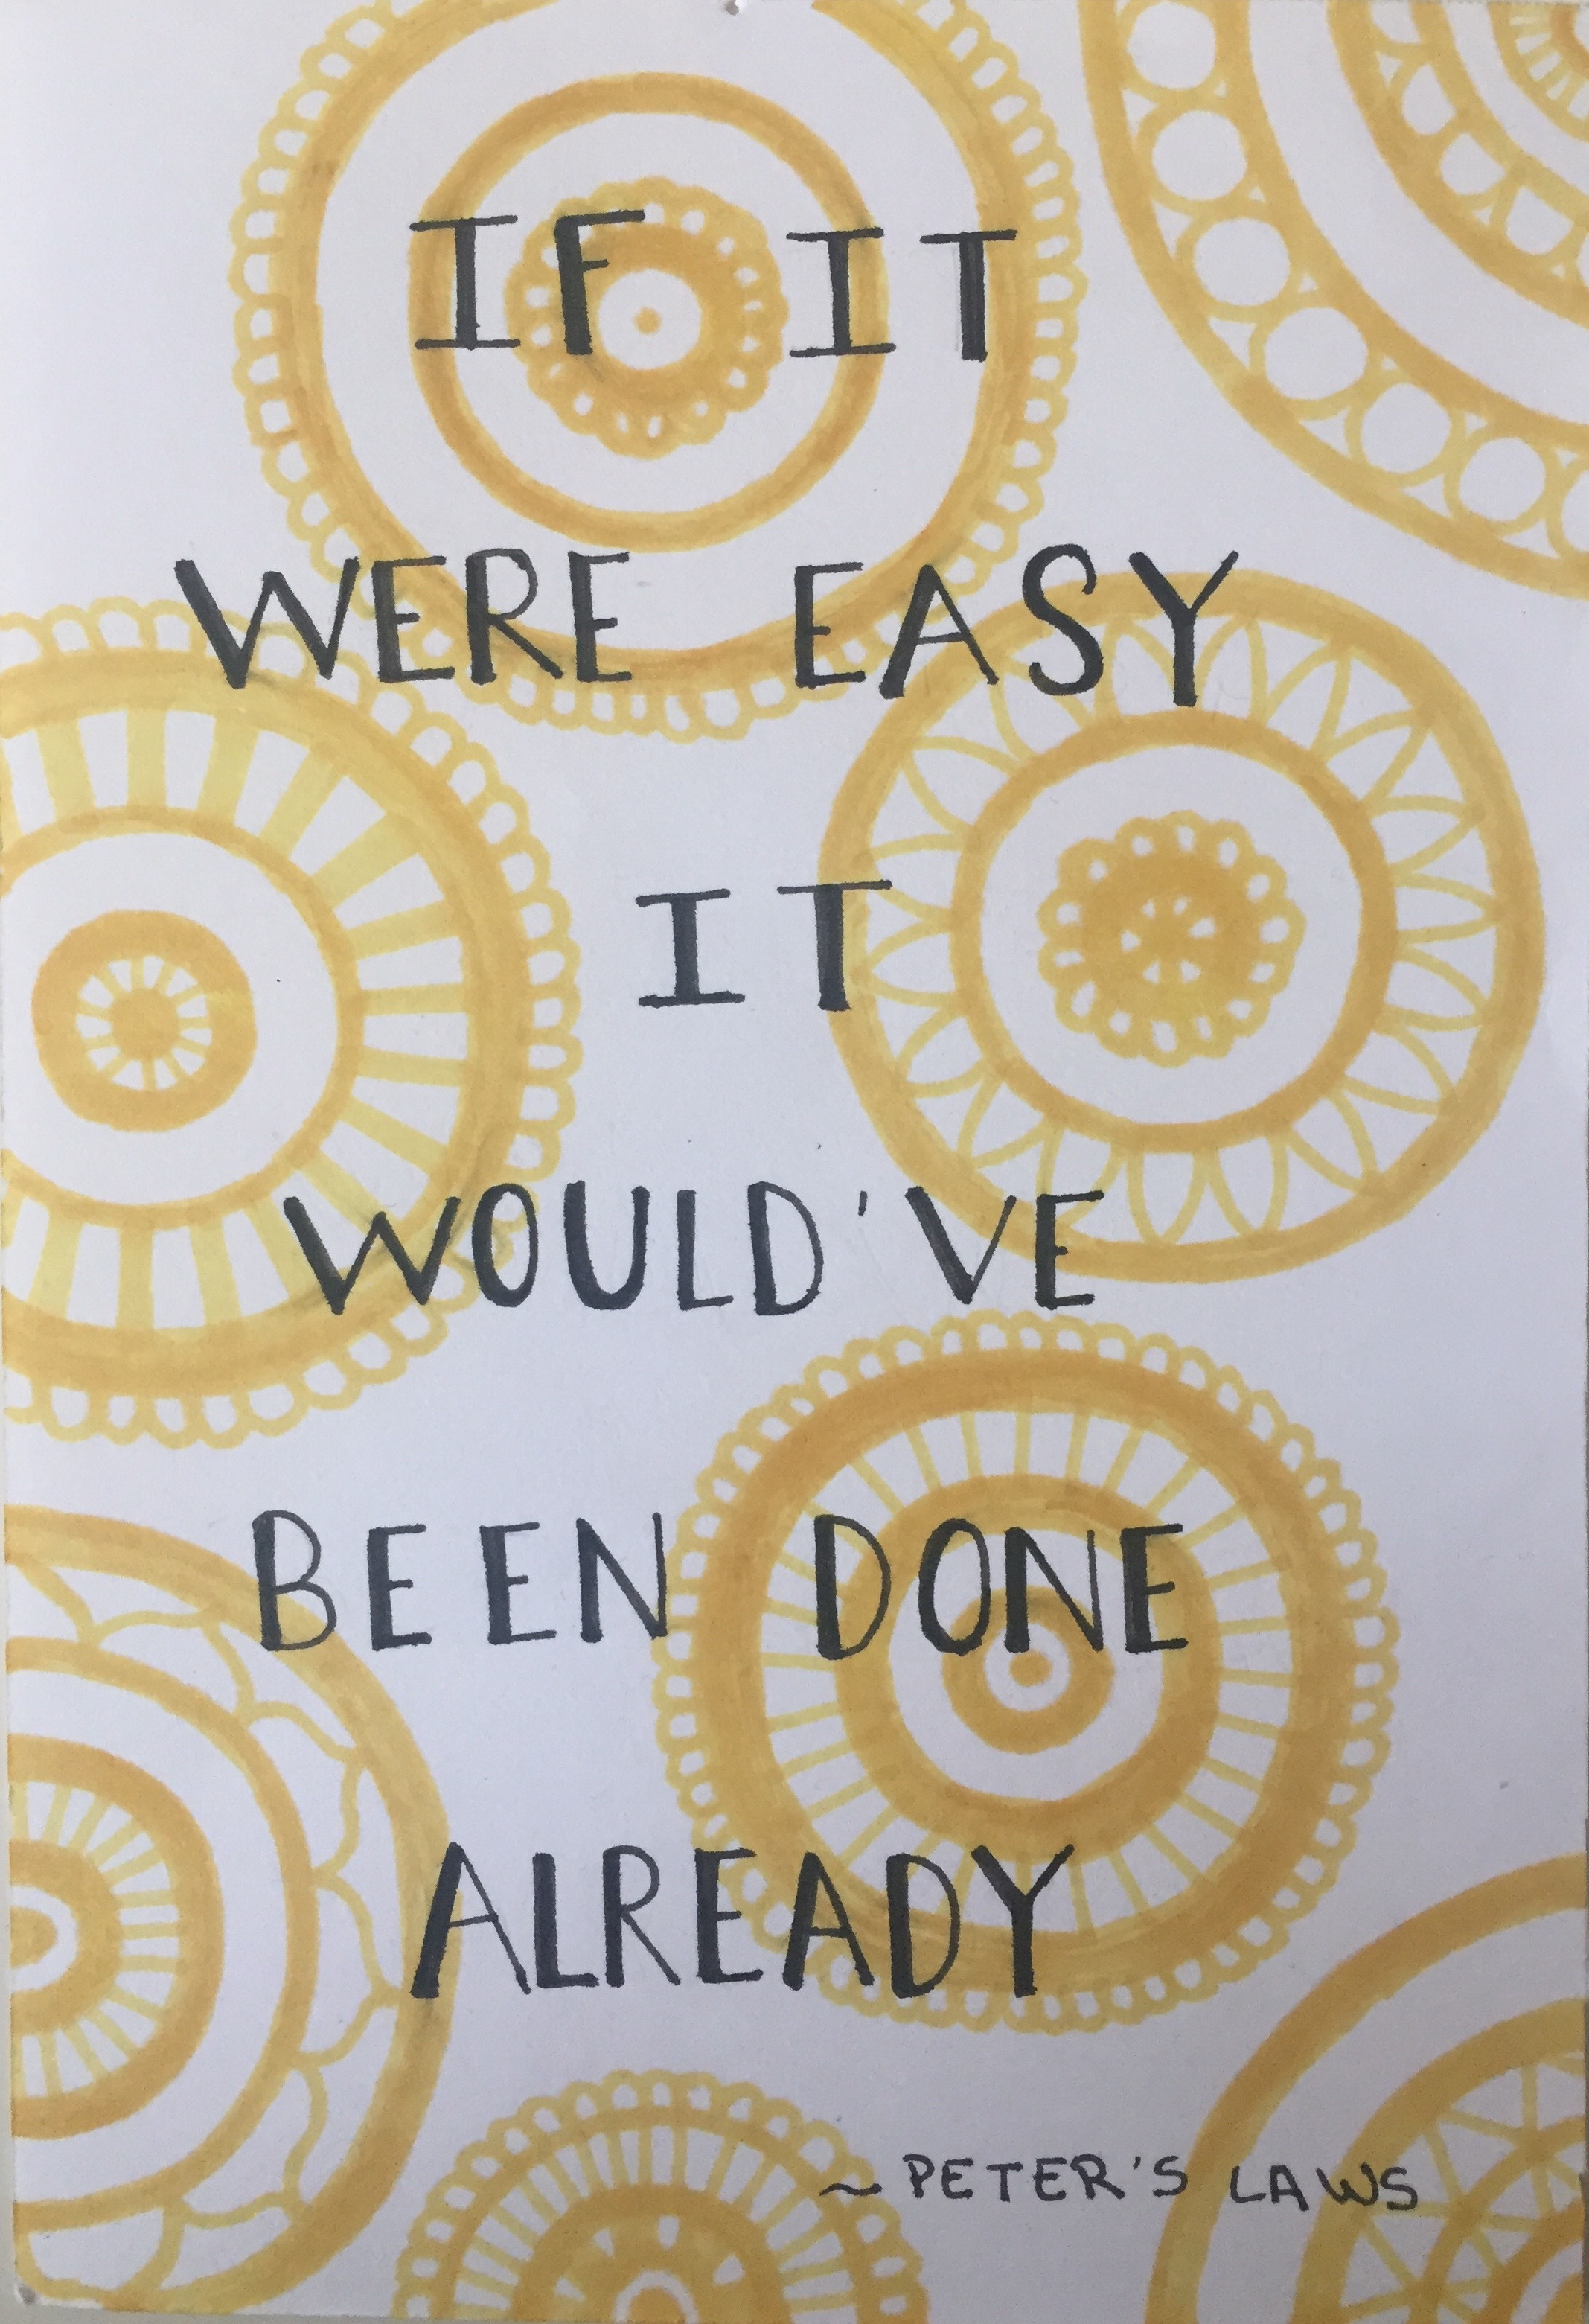 IF IT
WERE EASY
IT
WOULD'VE
BEEN DONE
ALREADY
~ PETER'S LAWS